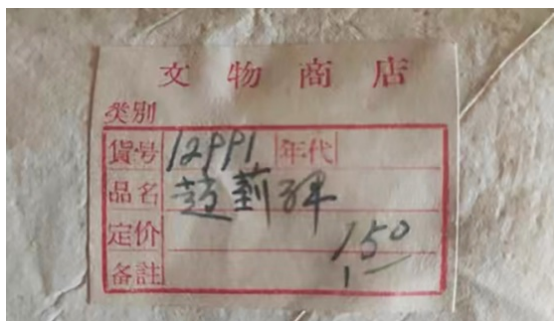 文物商店
类别
貨号 12991 年代
品名 趙菿碑
定价 150
备註